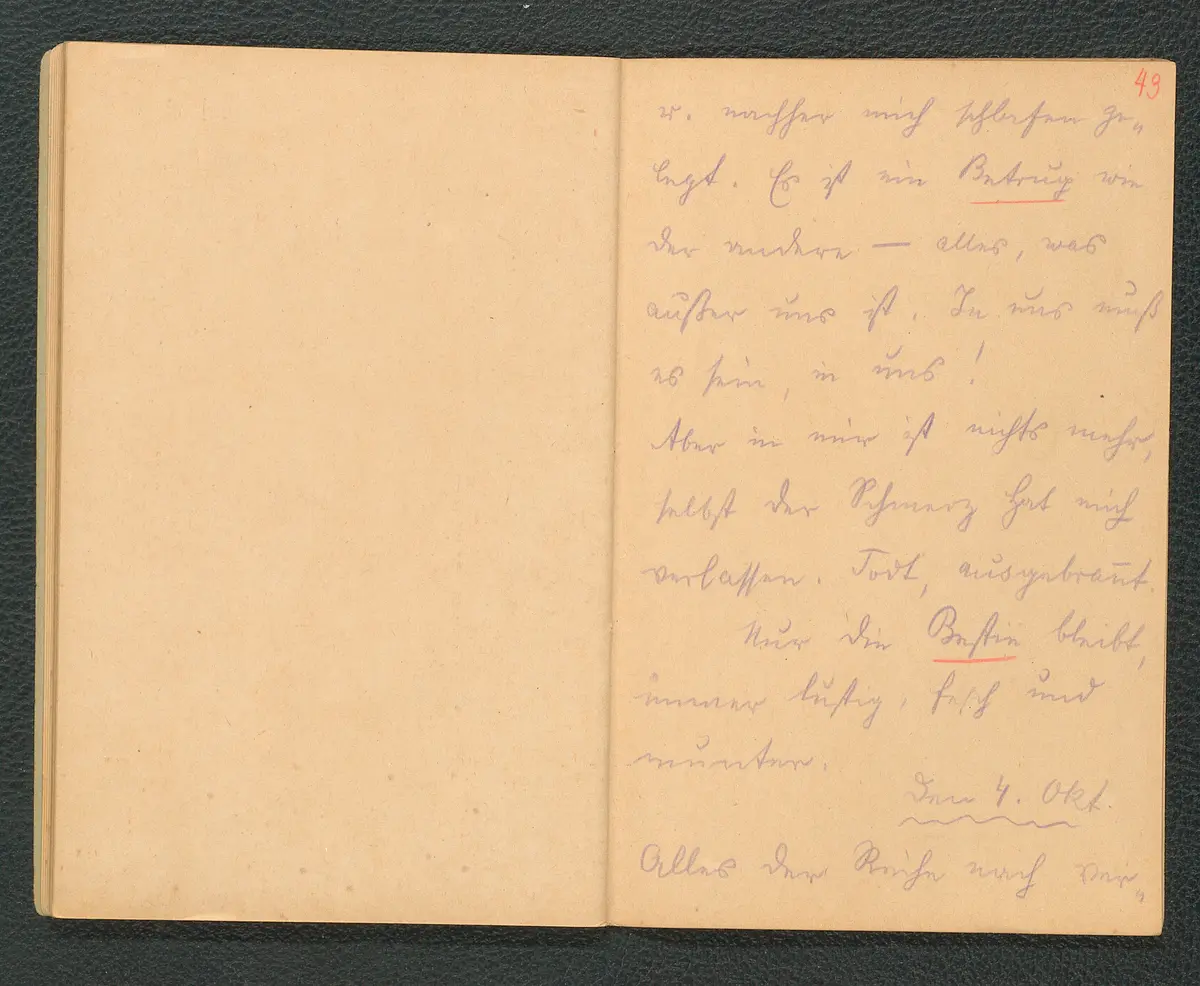 43
u. nachher mich schlafen ge„
legt. Es ist ein Betrug wie
der andere — alles, was
außer uns ist. In uns muß
es sein, in uns!
Aber in mir ist nichts mehr,
selbst der Schmerz hat mich
verlassen. Todt, ausgebran̄t.
Nur die Bestie bleibt,
immer lustig, fesch und
munter.
Den 4. Okt.
Alles der Reihe nach ver„